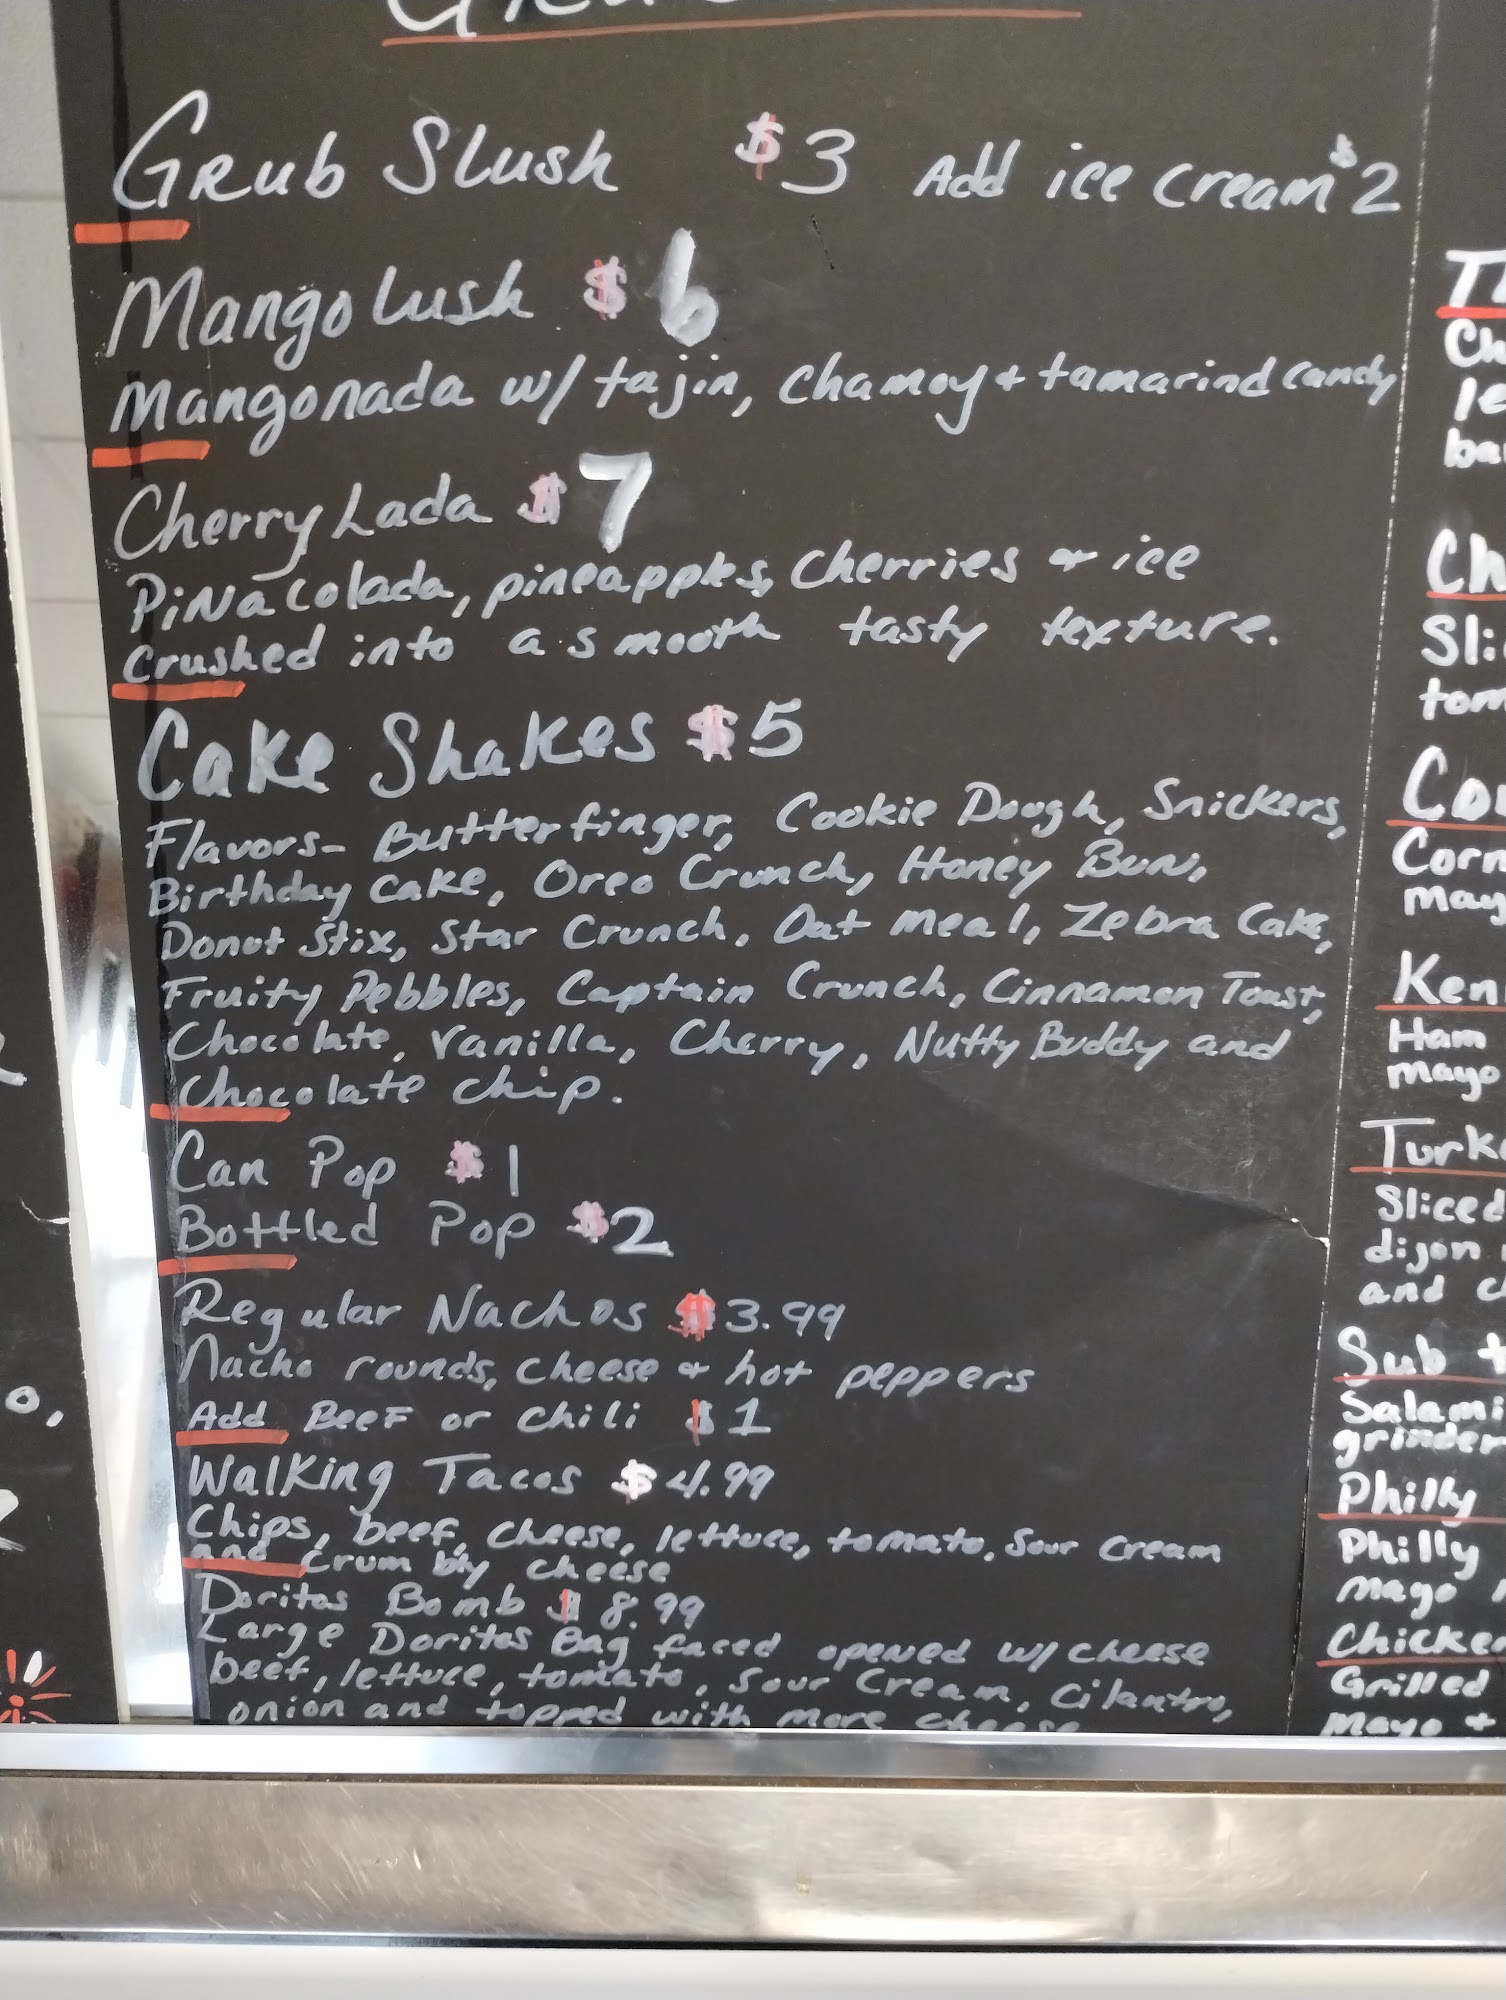 Grub Slush $3 Add ice cream $2
Mango Lush $6
Mangonada w/ tajin, chamoy + tamarind candy
Cherry Lada $7
Piña Colada, pineapples, Cherries + ice
crushed into a smooth tasty texture.
Cake Shakes $5
Flavors- Butterfinger, Cookie Dough, Snickers,
Birthday Cake, Oreo Crunch, Honey Bun,
Donut Stix, Star Crunch, Oat meal, Zebra Cake,
Fruity Pebbles, Captain Crunch, Cinnamon Toast,
Chocolate, Vanilla, Cherry, Nutty Buddy and
Chocolate chip.
Can Pop $1
Bottled Pop $2
Regular Nachos $3.99
Nacho rounds, cheese + hot peppers
Add Beef or chili $1
Walking Tacos $4.99
Chips, beef, cheese, lettuce, tomato, sour cream
and crumbly cheese
Doritos Bomb $8.99
Large Doritos Bag faced opened w/ cheese
beef, lettuce, tomato, sour cream, cilantro,
onion and topped with more cheese
Corn
may
Ken
Ham
mayo
Turk
Sliced
dijon
and c
Sub
Salami
grinder
Philly
Philly
mayo
Chicke
Grilled
mayo +